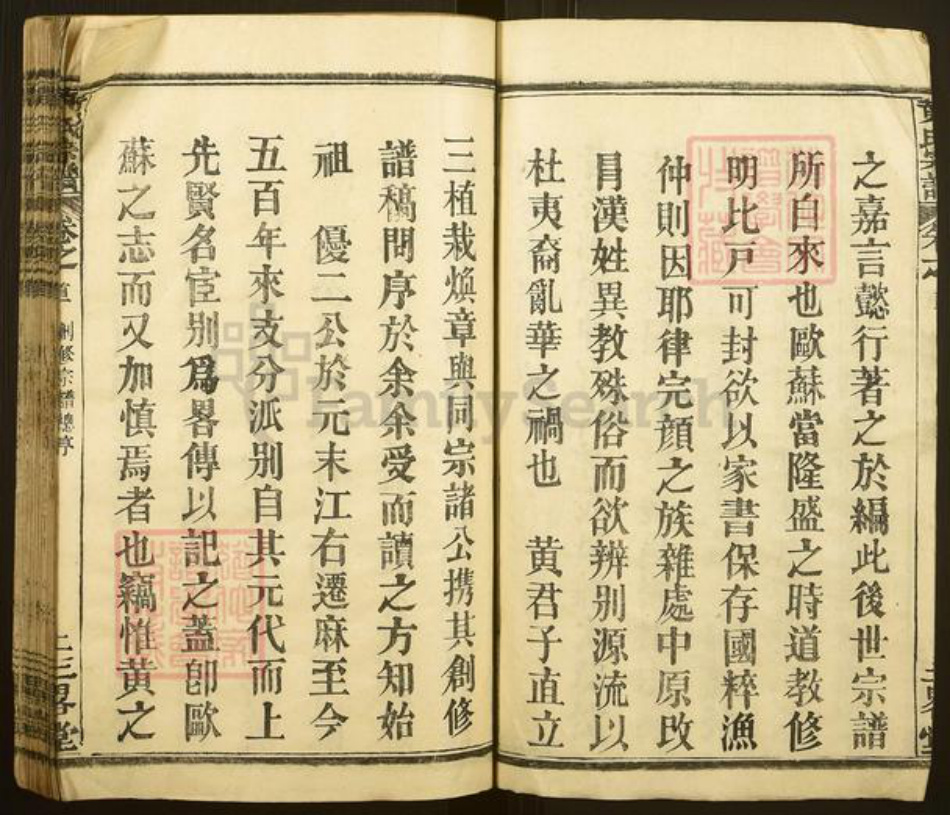 之嘉言懿行著之於編此後世宗譜
所自來也歐蘇當隆盛之時道教修
明比戸可封欲以家書保存國粹漁
仲則因耶律完顏之族雜處中原改
冐漢姓異教殊俗而欲辨别源流以
杜夷裔亂華之禍也 黄君子直立
三植栽焕章與同宗諸公携其創修
譜稿問序於余余受而讀之方知始
祖 優二公於元末江右遷麻至今
五百年來支分派别自其元代而上
先賢名宦别爲畧傳以記之蓋卽歐
蘇之志而又加慎焉者也竊惟黄之
卷之
創修宗譜總序
FamilySearch